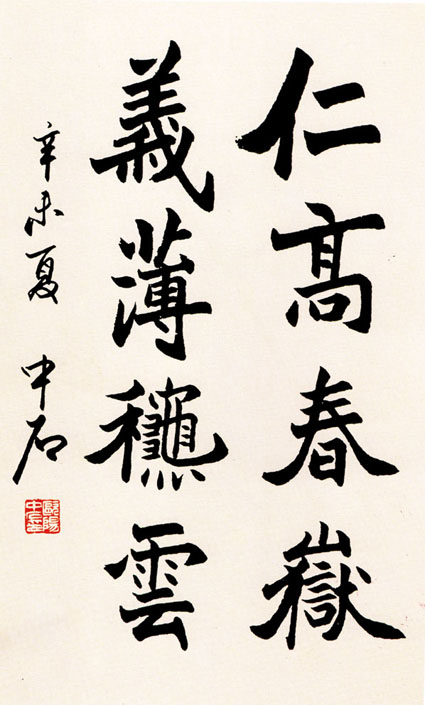 仁髙春嶽
義薄龝雲
辛未夏 中石
歐陽中石